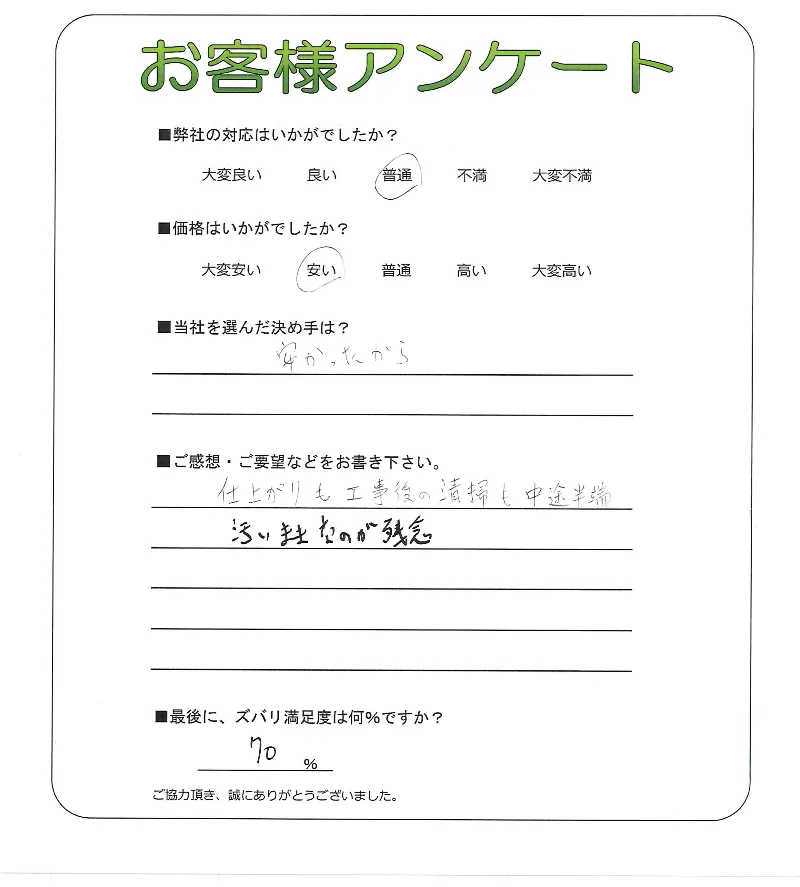 お客様アンケート
■弊社の対応はいかがでしたか？
大変良い 良い 普通 不満 大変不満
■価格はいかがでしたか？
大変安い 安い 普通 高い 大変高い
■当社を選んだ決め手は？
安かったから
■ご感想・ご要望などをお書き下さい。
仕上がりも工事後の清掃も中途半端
汚いままなのが残念
■最後に、ズバリ満足度は何％ですか？
70 %
ご協力頂き、誠にありがとうございました。